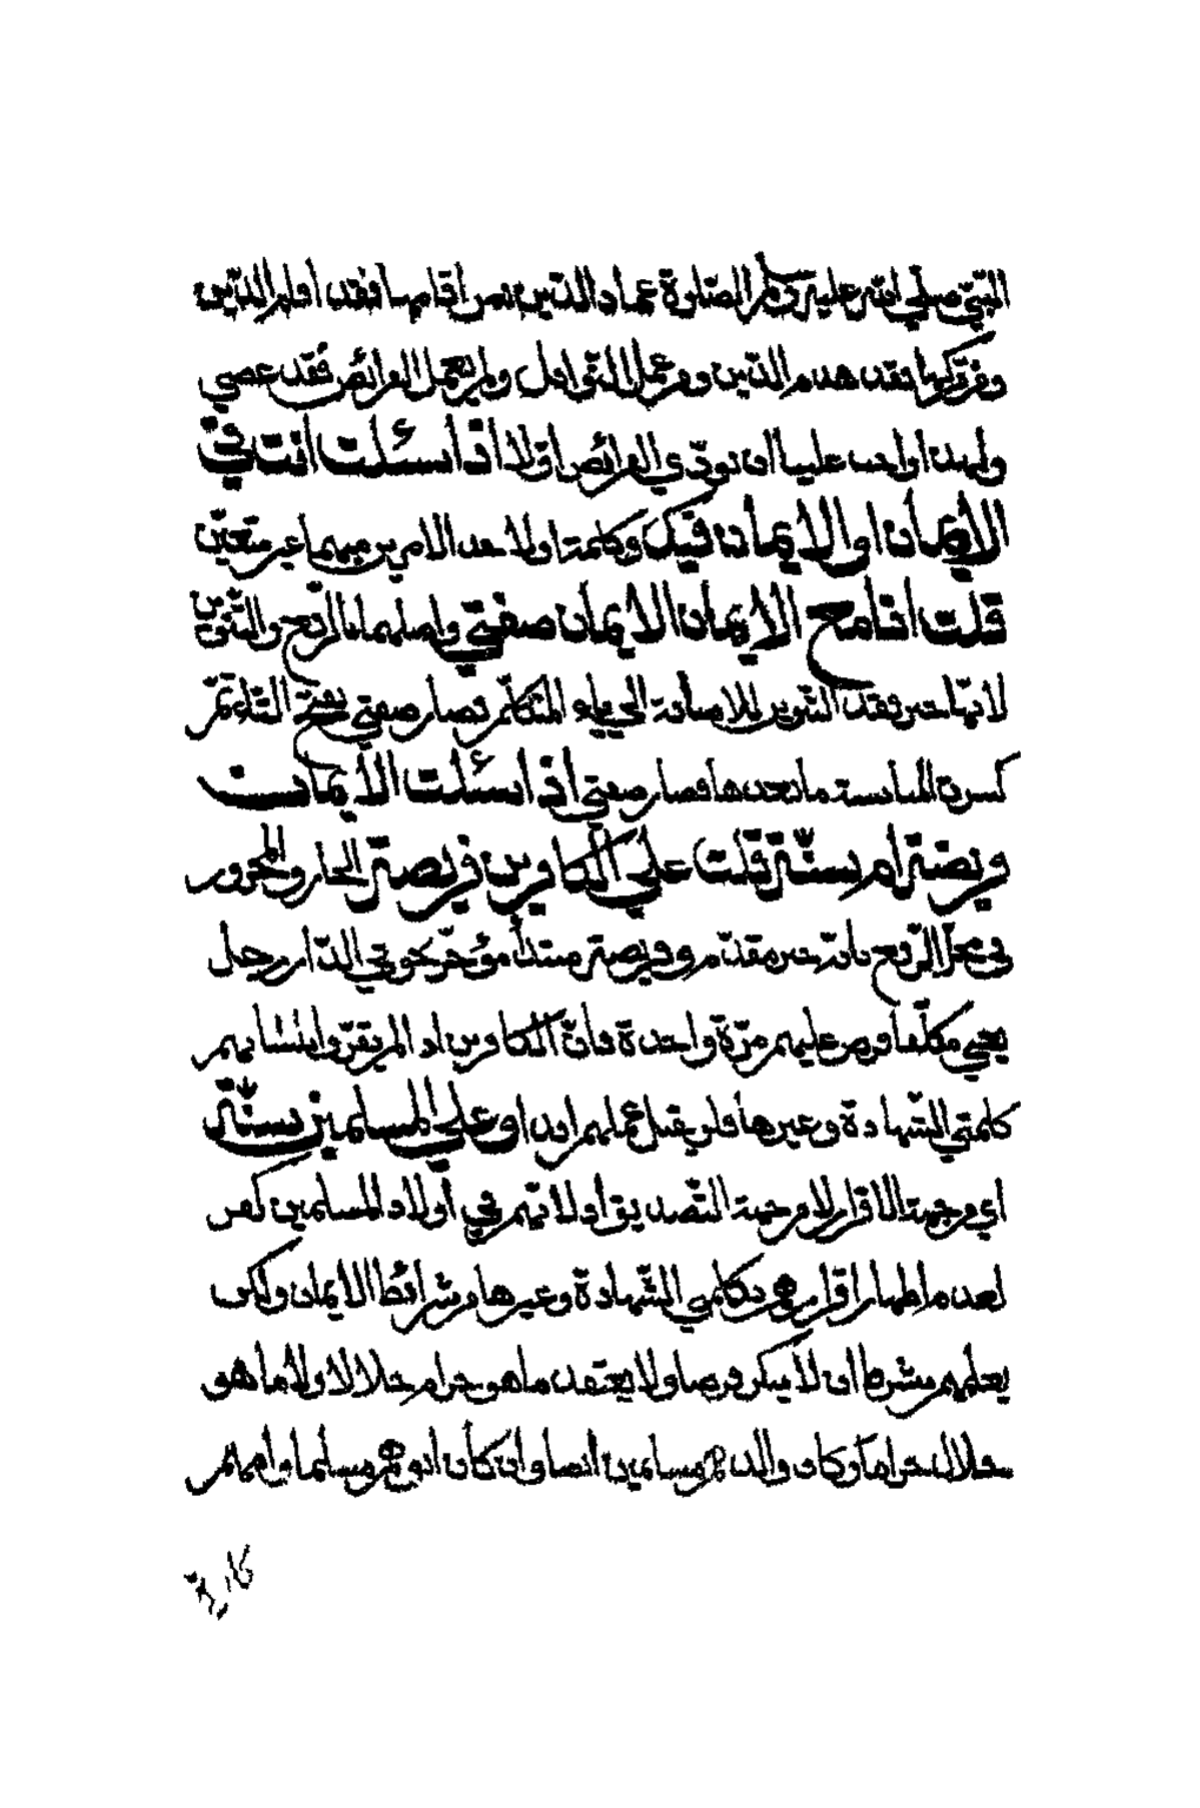 النبيّ صلي الله عليه وسلم الصّلوة عماد الدّين فمن اقامها فقد اقام الدّين
ومن تركها فقد هدم الدّين ومن عمل النّوافل ولم يعمل الفرائض فقد عصي
ولهذا واجب علينا ان نودّي الفرائض اوّلا اذا سئلت انت في
الايمان او الايمان فيك وكلمة او لاحد الامرين مبهما غير متعيّن
قلت انا مع الايمان الايمان صفتي واصلهما بالرّفع والتّنوين
لانّها من فقد التّنوين للاضافة الي ياء المتكلّم فصار صفتي بفتح التّاء ثمّ
كسرت لمناسبة ما بعدها فصار صفتي اذا سئلت الايمان
فريضة ام سنّة قلت علي الكافرين فريضة الجار والمجرور
في محلّ الرّفع بانّه خبر مقدّم وفريضة مبتدأ مؤخّر نحو في الدّار رجل
يعني مكلّفا فرض عليهم مرّة واحدة فانّ الكافرين اذا لم يقرّوا بلسانهم
كلمتي الشّهادة وغيرها فلن يقبل عملهم ابدا وعلي المسلمين سنّة
اي من جهة الاقرار لا من جهة التّصديق اذ لانّهم في اولاد المسلمين كفر
بعد ما اظهار اقرارهم بكلمتي الشّهادة وغيرها من شرائط الايمان ولكن
يعلمهم بشرط ان لا ينكر فرضا ولا يعتقد ما هو حرام حلالا ولا ما هو
حلال حراما وكان والدهم مسلمين ايضا وان كان ابوهم مسلما وامهم
كافرة